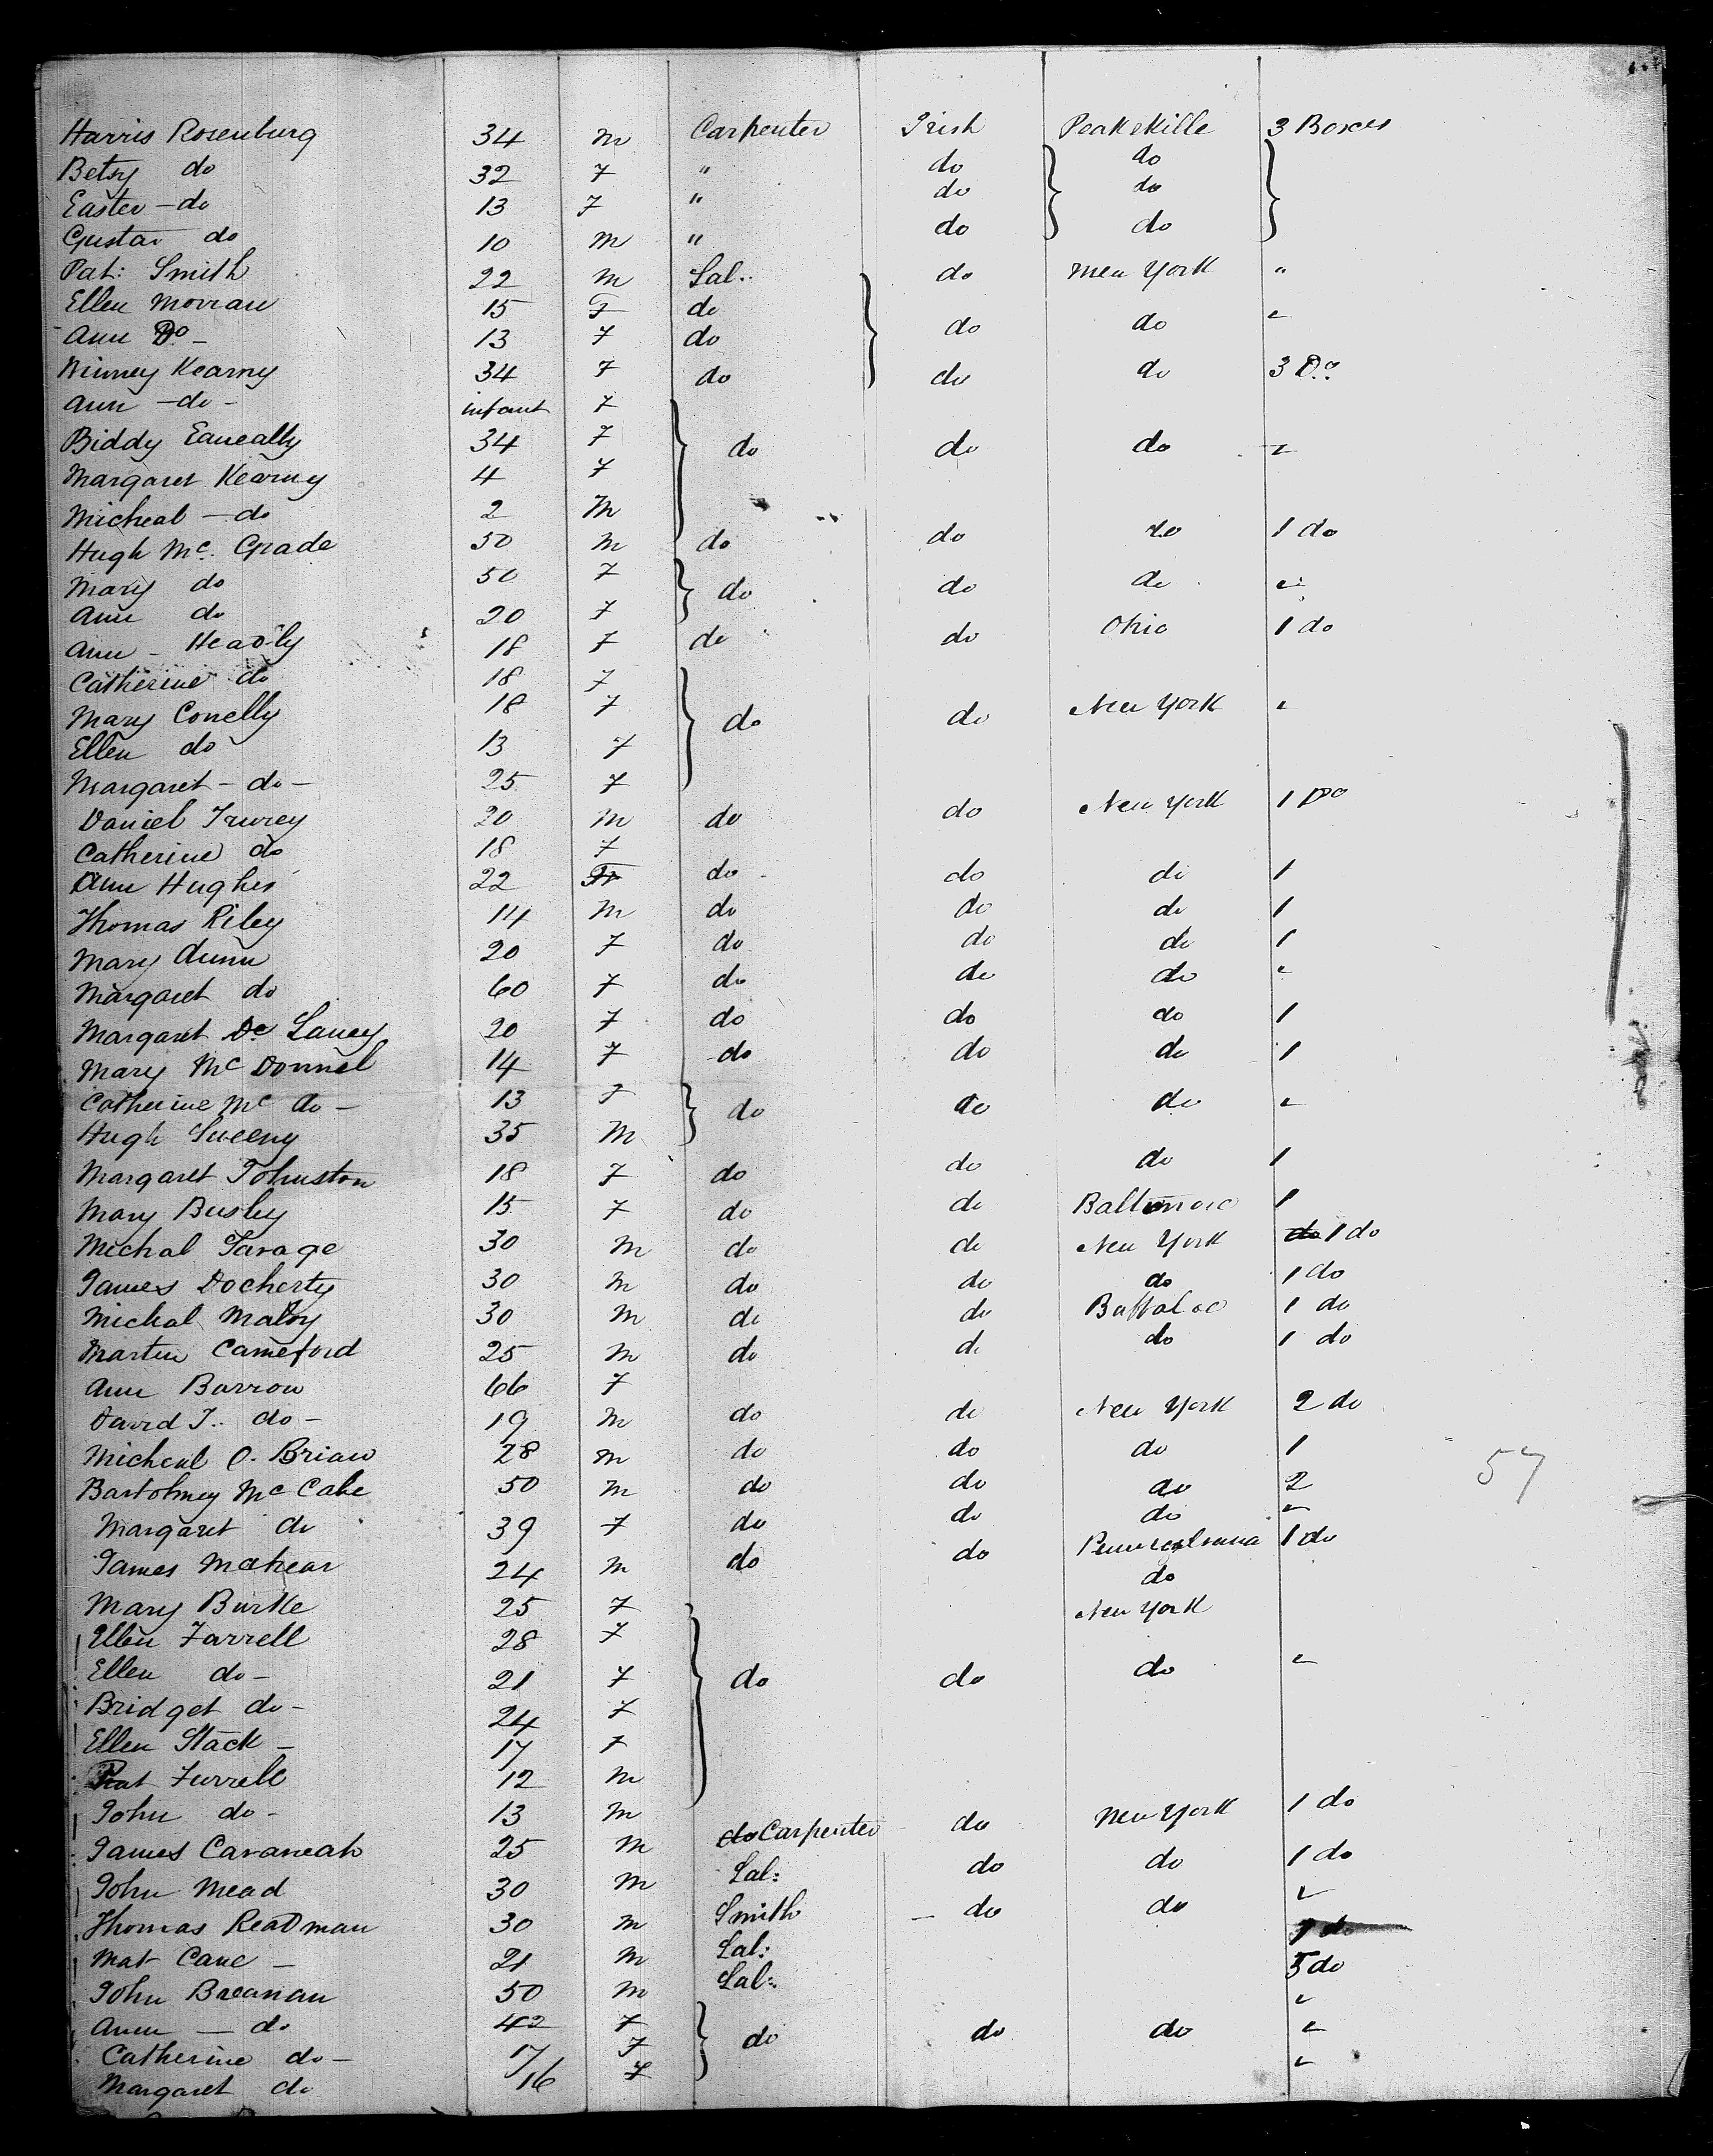 Harris Rosenburg 34 m Carpenter Irish Peakskille 3 Boxes
Betsy do 32 F " do do
Easter - do 13 F " do do
Gustav do 10 m " do do
Pat: Smith 22 m Lal. do new York "
Ellen Morran 15 F do
Ann Do - 13 F do do do "
Winney Kearny 34 F do do do 3 Do
Ann - do - infant F
Biddy 34 F do do do "
Margaret Kearny 4 F
Micheal - do 2 M
Hugh Mc. Grade 50 m do do do 1 do
Mary do 50 F do do do "
Ann do 20 F
Ann - Headly 18 F do do Ohio 1 do
Catherine do 18 F
Mary Conelly 18 F do do New York "
Ellen do 13 F
Margaret - do - 25 F
Daniel 20 m do do New York 1 Do
Catherine do 18 F
Ann Hughes 22 F do do do 1
Thomas Riley 14 m do do do 1
Mary Dunn 20 F do do do 1
Margaret do 60 F do do do "
Margaret De Lancy 20 F do do do 1
Mary Mc Donnel 14 F do do do 1
Catherine Mc do - 13 F do do do "
Hugh Sweeny 35 M
Margaret Johnston 18 F do do do 1
Mary Busley 15 F do do Baltimore 1
Michal Savage 30 m do do New York do 1 do
James Docherty 30 m do do do 1 do
Michal Maloy 30 m do do Buffaloo 1 do
Martin Cameford 25 m do do do 1 do
Ann Barrow 66 F
David J. do - 19 m do do New York 2 do
Micheal O. Brian 28 m do do do 1
57
Bartolmey Mc Cabe 50 m do do do 2
Margaret do 39 F do do do "
James Mahear 24 m do do Pennsylvania 1 do
do
Mary Burke 25 F New York
Ellen Farrell 28 F
Ellen do - 21 F do do do "
Bridget do - 24 F
Ellen Stack - 17 F
Pat Furrell 12 m
John do - 13 m
James Cavaneah 25 m do Carpenter do New York 1 do
John Mead 30 m Lal: do do 1 do
Thomas Readman 30 m Smith - do do "
Mat Cane - 21 m Lal:
John Breanan 50 m Lal: 5 do
Ann - do 42 F "
Catherine do - 17 F do do do "
Margaret do 16 F "